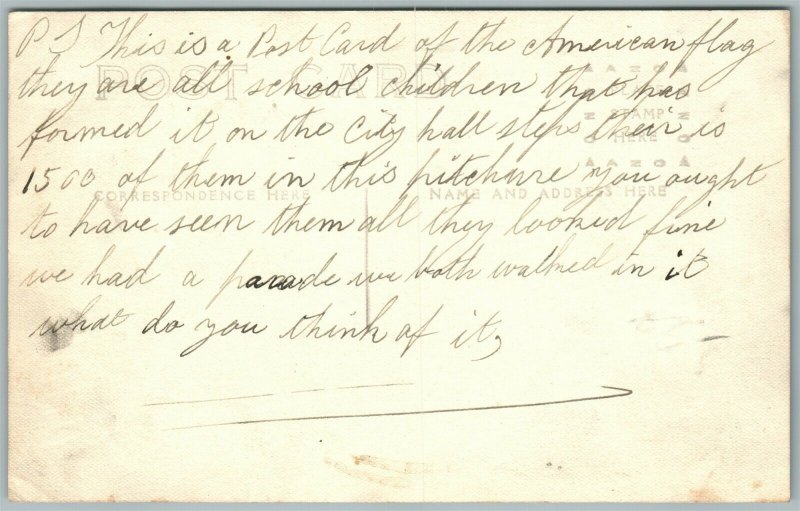 PS This is a Post Card of the American flag
they are all school children that has
formed it on the City hall steps their is
1500 of them in this pitchure you ought
to have seen them all they looked fine
we had a parade we both walked in it
what do you think of it,
POST CARD
AZO
STAMP
HERE
AZO
CORRESPONDENCE HERE
NAME AND ADDRESS HERE